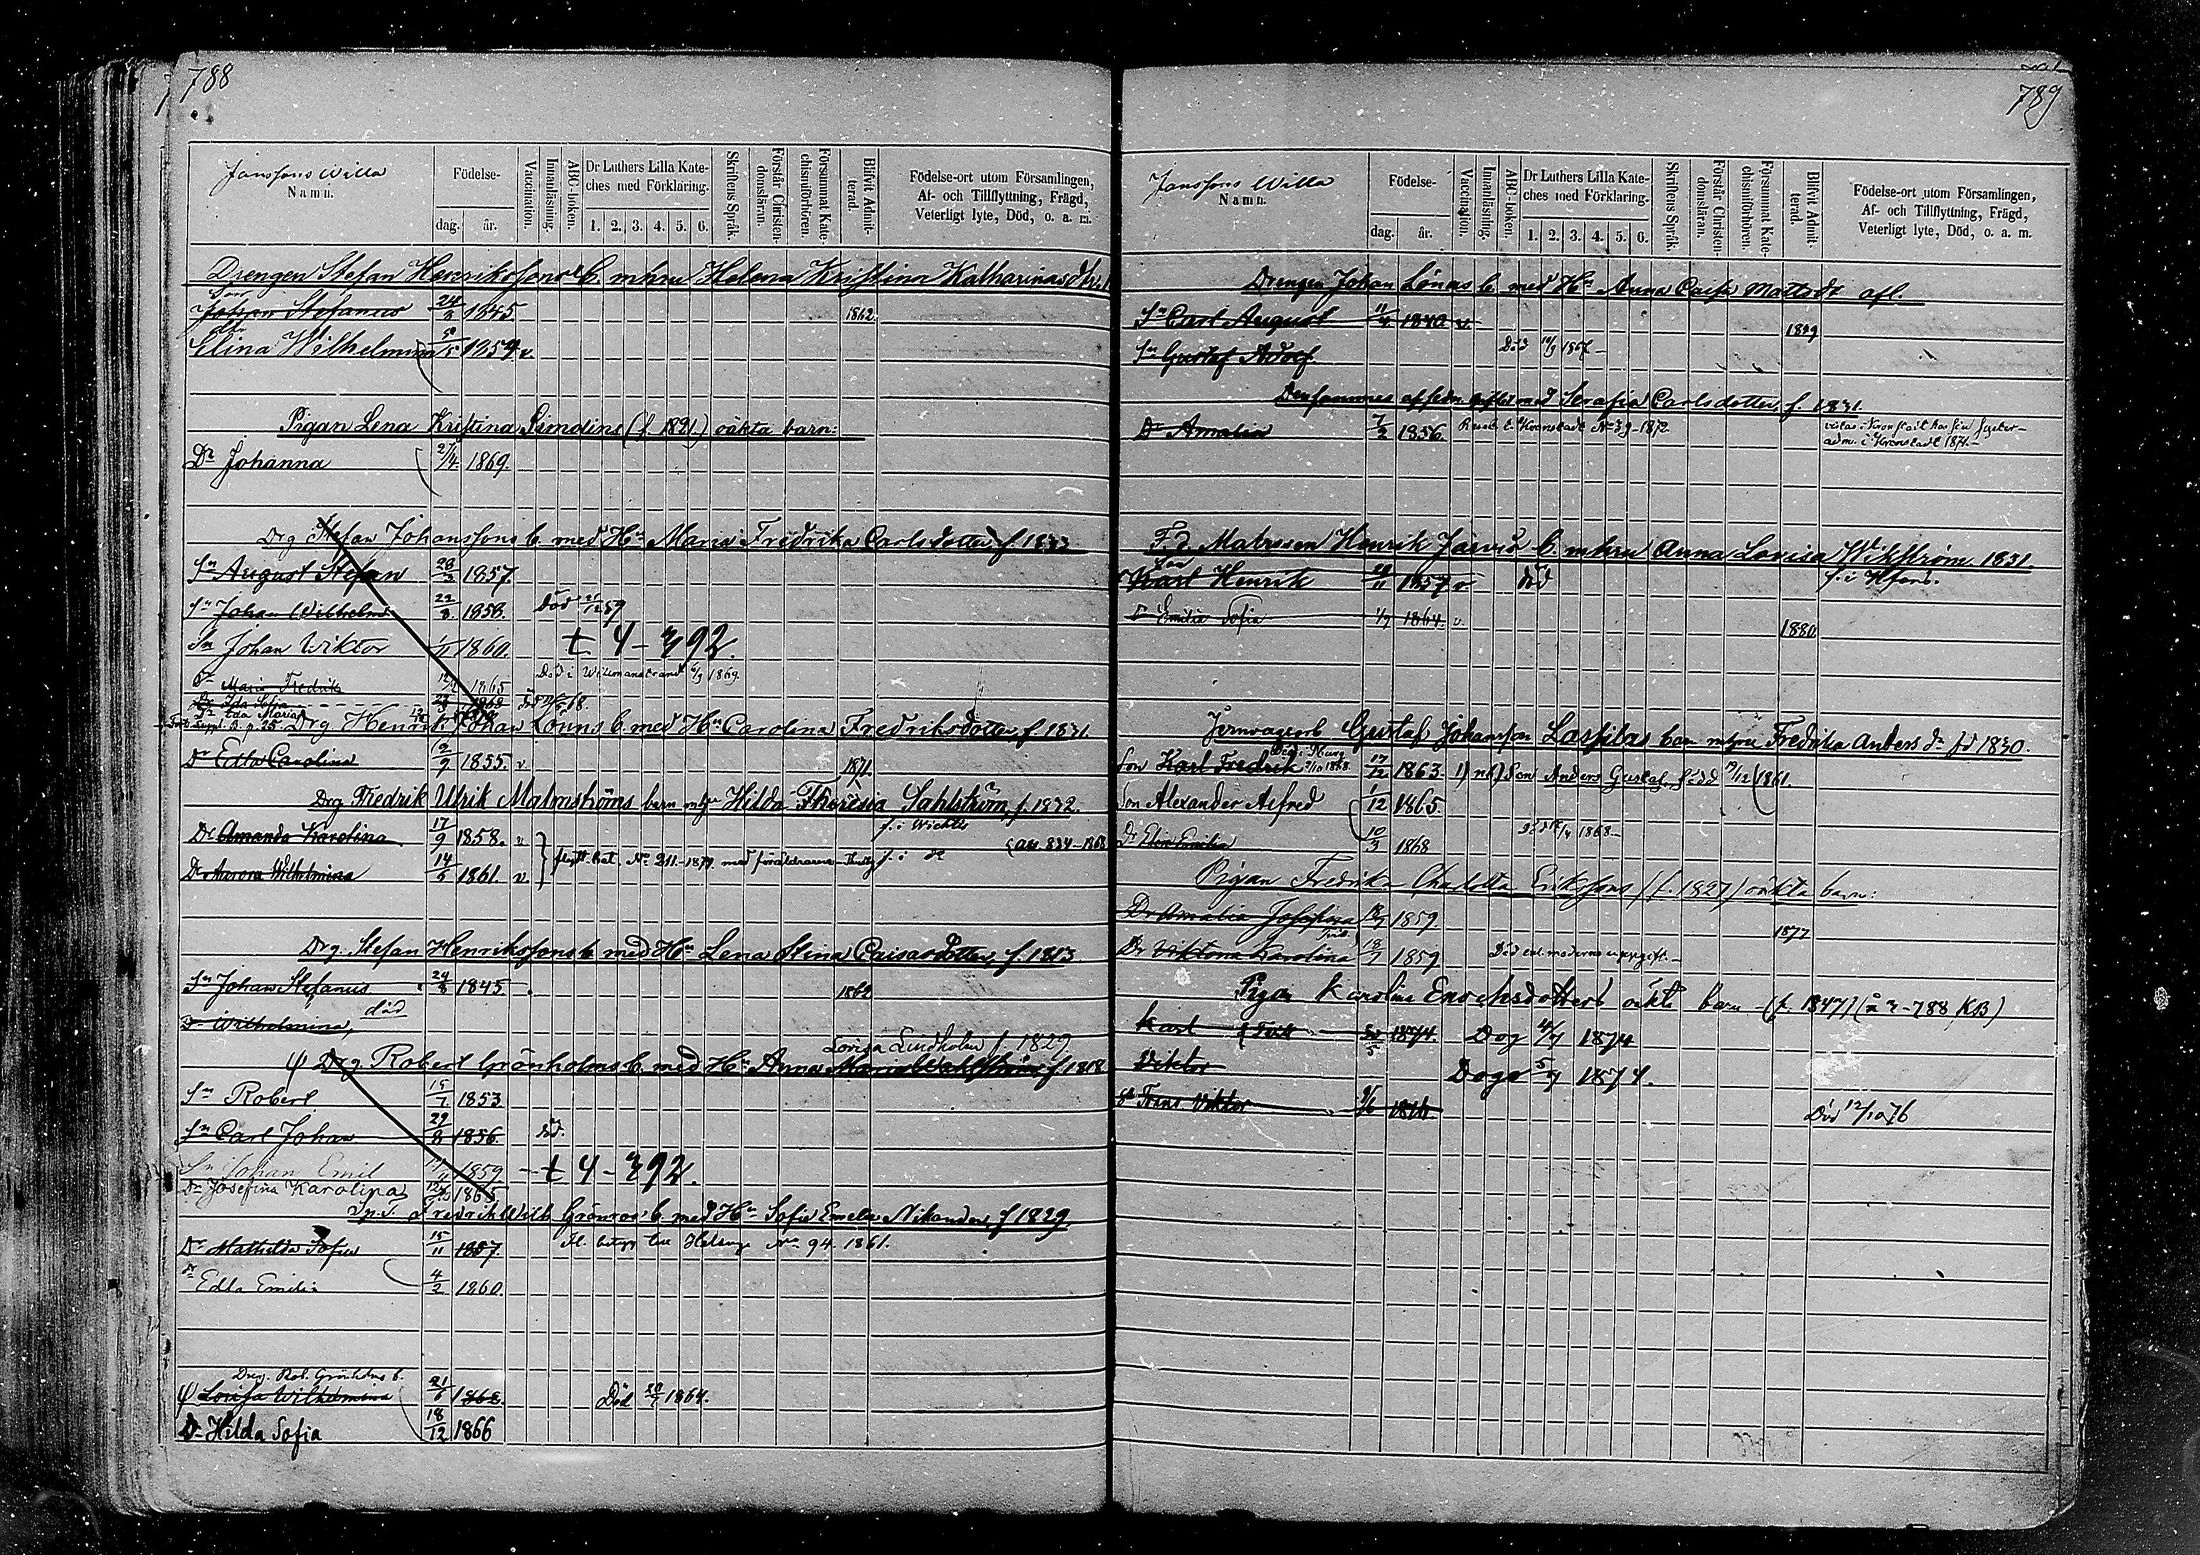 788
Janssons Willa
Namn.
Födelse-
dag. år.
Vaccination.
Innanläsning.
ABC-boken.
Dr Luthers Lilla Kate-
ches med Förklaring.
1. 2. 3. 4. 5. 6.
Skriftens Språk.
Förstår Christen-
domsläran.
Försummat Kate-
chismiförhören.
Blifvit Admit-
terad.
Födelse-ort utom Församlingen,
Af- och Tillflyttning, Frägd,
Veterligt lyte, Död, o. a. m.
Drengen Stefan Henrikssons b. m hru Helena Kristina Katharinasdtr.
Son
Johan Stefanus 24/8 1845 1862
Selina Wilhelmina 1859 v
Pigan Lena Kristina Simolins (f. 1821) oäkta barn:
Dr Johanna 27/4 1869.
Drg Stefan Johanssons b. med Hu Maria Fredrika Carlsdotter f. 1833
Sn August Stefan 28/3 1857.
Sn Johan Wilhelm 22/8 1858. död 21/12 59
Sn Johan Wiktor 1/11 1860. t. 4-392.
Maria Fredrika 1865 Död i Willmanstrand 6/9 1869.
Dr Ida Sofia
Ida Maria
Drg Henrik Johan Lönns b. med Hu Carolina Fredriksdotter f. 1831.
Dr Edla Carolina 9/9 1855. v 1871.
Drg Fredrik Ulrik Malmströms barn m hr Hilda Theresia Sahlström, f. 1832.
f. i Wichtis
Dr Amanda Karolina 17/9 1858. v
Dr Aurora Wilhelmina 14/5 1861. v. flytt bet. No 211.-1879 med föräldrarne
Drg. Stefan Henrikssons b. med Hu Lena Stina Caisasdotter, f. 1813.
Sn Johan Stefanus 24/8 1845 1862
Dr Wilhelmina, död
Lovisa Lindholm f. 1829
φ Drg Robert Grönholms b. med Hu Anna Maria Wahlström f 1818
Sn Robert 15/7 1853
Sn Carl Johan 29/8 1856. död.
Sn Johan Emil 1859. t 4-392.
Dr Josefina Karolina 1865
Fredrik Wilh Grönroos b. med Hu Sofia Emelia Nikander, f 1829.
Dr Mathilda Sofia 15/11 1857. Fl. betyg till Helsinge No 94. 1861.
Dr Edla Emilia 4/2 1860.
Dreng. Rob. Grönholms b.
φ Lovisa Wilhelmina 21/6 1862. Död 1864.
Dr Hilda Sofia 18/12 1866
789
Janssons Willa
Namn.
Födelse-
dag. år.
Vaccination.
Innanläsning.
ABC-boken.
Dr Luthers Lilla Kate-
ches med Förklaring.
1. 2. 3. 4. 5. 6.
Skriftens Språk.
Förstår Christen-
domsläran.
Försummat Kate-
chismiförhören.
Blifvit Admit-
terad.
Födelse-ort utom Församlingen,
Af- och Tillflyttning, Frägd,
Veterligt lyte, Död, o. a. m.
Drengen Johan Lönns b. med Hu Anna Caisa Mattsdr afl.
Sn Carl August 11/4 1840 v.
Sn Gustaf Adolf Död 1867
Densammes afsedn. gifted med Serafia Carlsdotter, f. 1831
Dr Amalia 7/2 1856. Reseb. t. Kronstadt No 39-1872.
adm. i Kronstadt 1874.
F.d. Matrosen Henrik Jaevis b. m hru Anna Lovisa Wikström 1831.
f. i Hfors.
son
Karl Henrik 1857 v död
Dr Emilia Sofia 1/7 1864. v. 1880
Jernvagnrb Gustaf Johansson Laspilas barn m hru Fredrika Anders dr fd 1830.
Son Karl Fredrik 17/12 1863 Son Anders Gustaf, född 19/12 1861.
Son Alexander Alfred 1/12 1865.
Dr Edia Emilia 10/3 1868 Död 1868
Pigan Fredrika Charlotta Erikssons (f. 1827) oäkta barn:
Dr Amalia Josefina 18/7 1859. 1877
Dr Viktoria Karolina 18/7 1859 Död enl. moderns uppgift.
Pigan Karolina Enochsdotters oäkta barn (f. 1847) 788 KB)
Karl 1874. Dog 1874
Viktor Dog 1874.
Frans Viktor 1876. Död 12/10 76